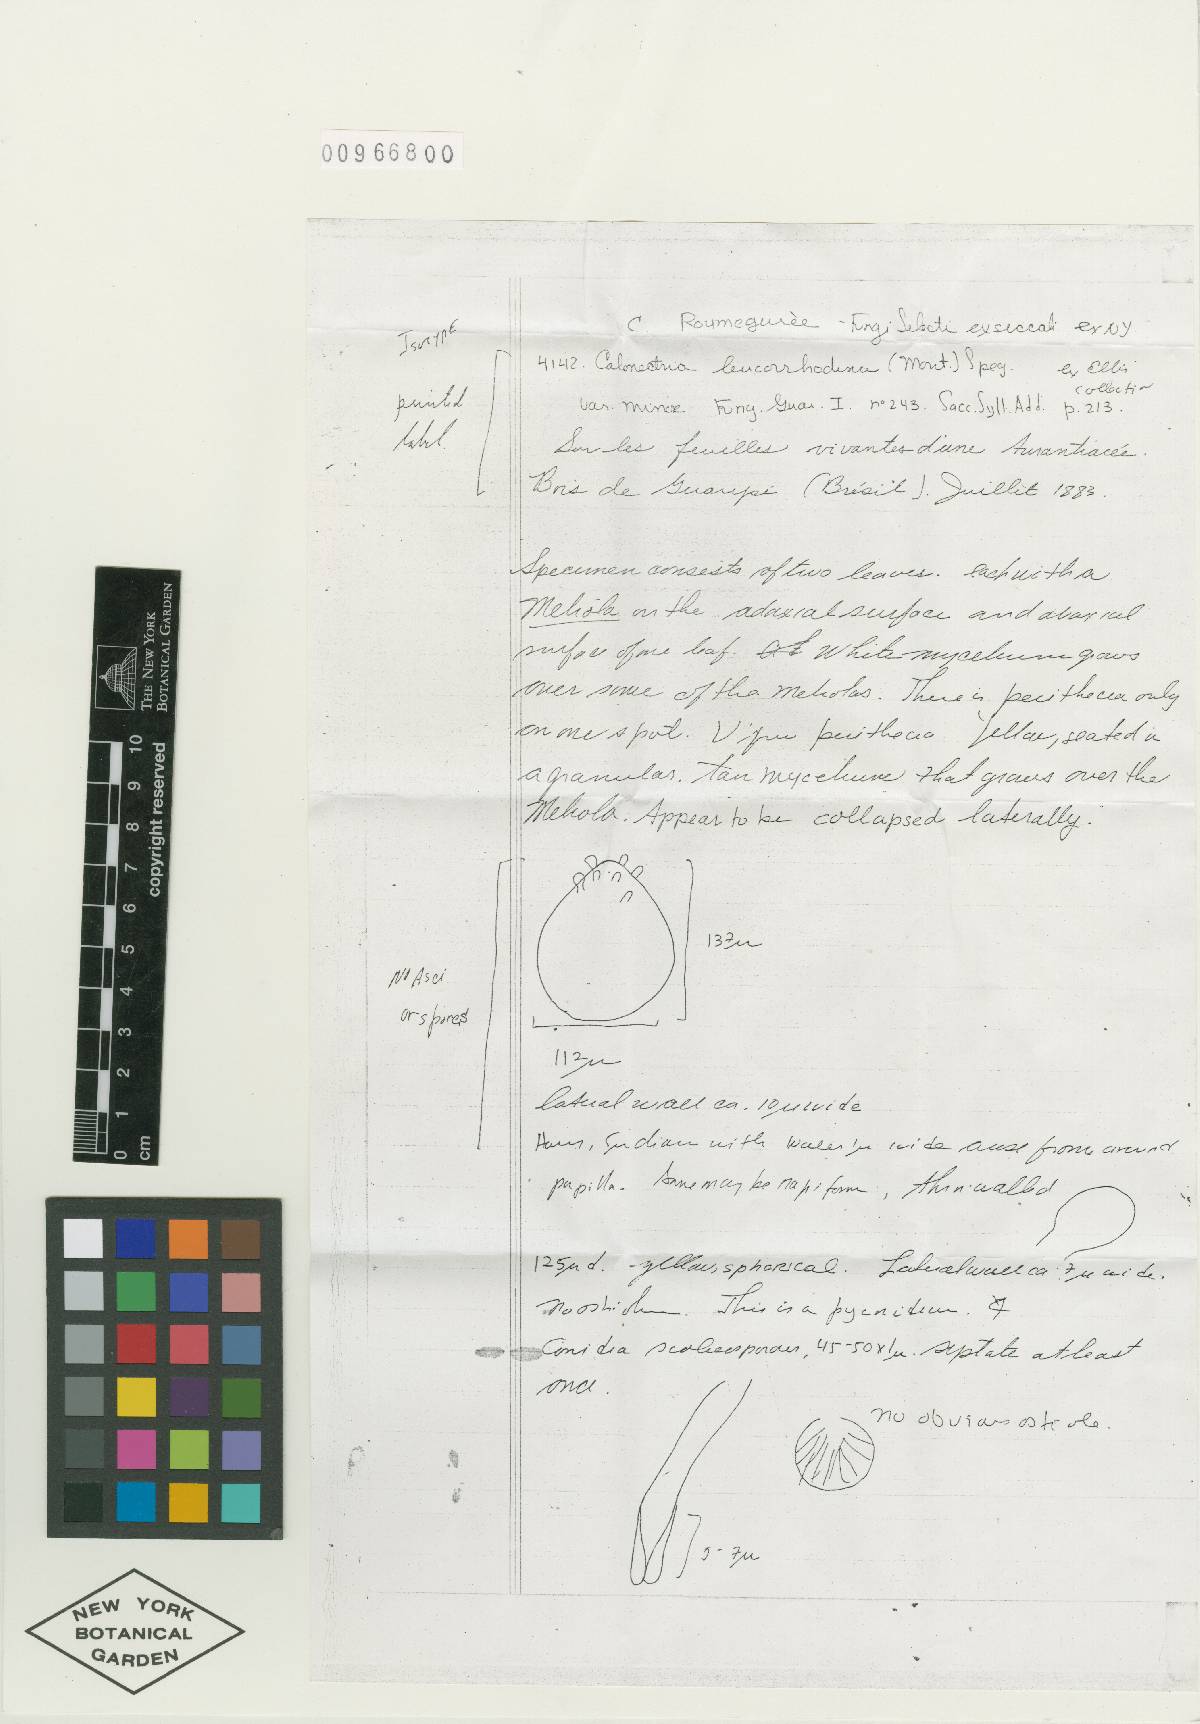 00966800
C. Roumeguère - Fungi Selecti exsiccati ex NY
Isotype
4142. Calonectria leucorrhodina (Mont.) Speg. ex Ellis
collection
printed
label.
var. minor Fung. Guar. I. nº 243. Sacc. Syll. Add. p. 213.
Sur les feuilles vivantes d'une Aurantiacée.
Bois de Guarapi (Brésil). Juillet 1883.
Specimen consists of two leaves. each with a
Meliola on the adaxial surface and abaxial
surface of one leaf. White mycelium grows
over some of the meliolas. There is perithecia only
on one spot. perithecia yellow, seated in
a granular. tan mycelium that grows over the
Meliola. Appear to be collapsed laterally.
137µ
No Asci
or spores
112µ
lateral wall ca. 10µ wide
with wide arise from around
papilla. Some may be napiform, thin walled
125µ d. - yellow, spherical. Lateral wall ca 7µ wide.
no ostiolum. This is a pycnidium.
Conidia scolecosporous, 45-50x1µ. septate at least
once.
no obvious ostiole.
5-7µ
THE NEW YORK
BOTANICAL GARDEN
copyright reserved
10 9 8 7 6 5 4 3 2 1 0
cm
NEW YORK
BOTANICAL
GARDEN